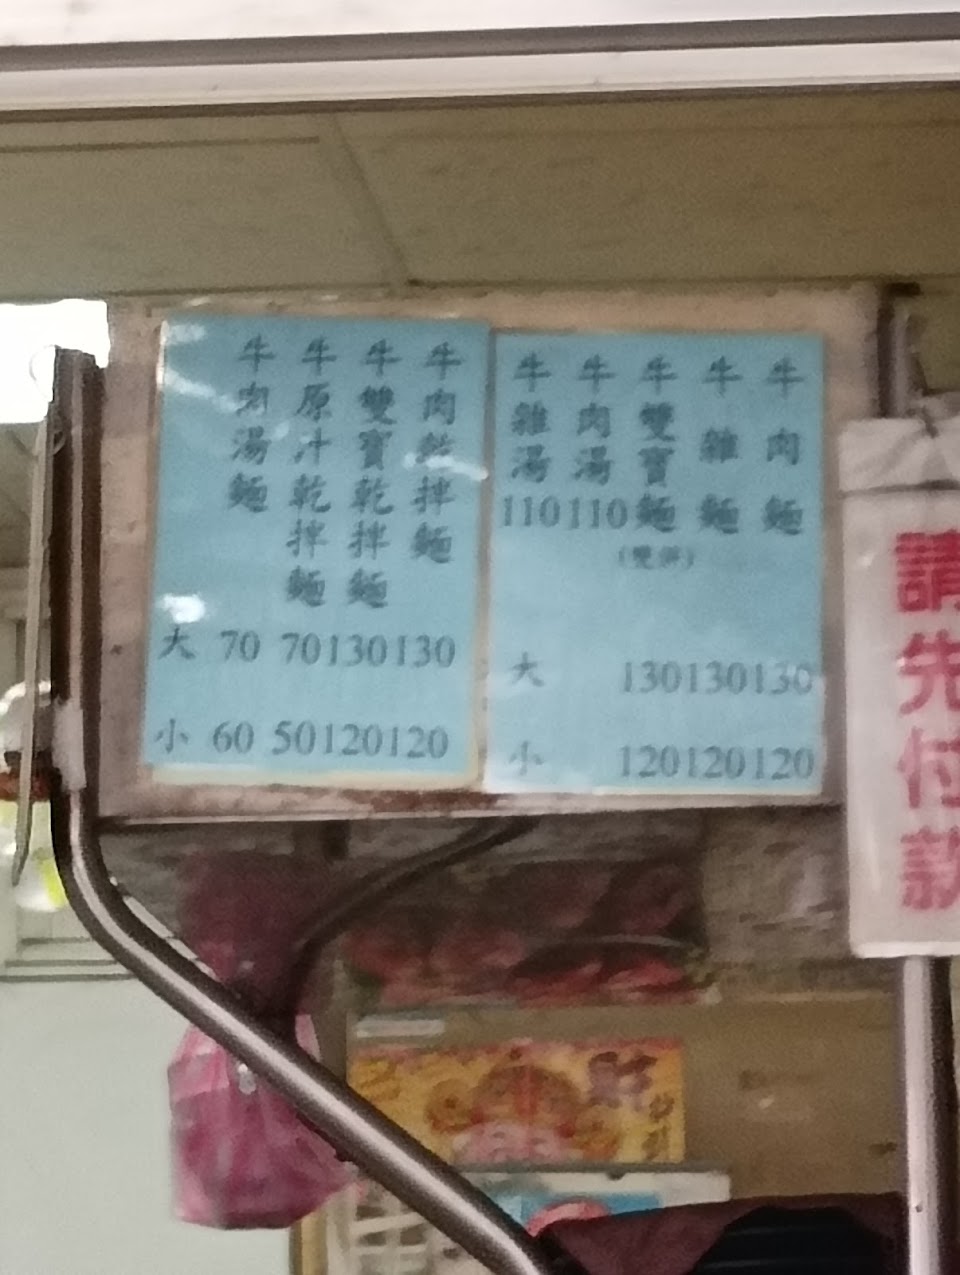 牛肉麵
牛雜麵
牛雙寶麵
(雙併)
牛肉湯110
牛雜湯110
大 130 130 130
小 120 120 120
牛肉乾拌麵
牛雙寶乾拌麵
牛原汁乾拌麵
牛肉湯麵
大 70 70 130 130
小 60 50 120 120
請先付款
財